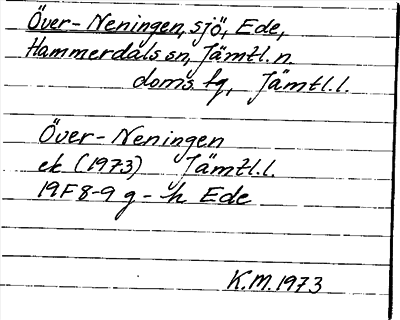 Över-Neningen, sjö, Ede,
Hammerdals sn, Jämtl. n.
doms. tg, Jämtl.l.
Över-Neningen
ek (1973) Jämtl.l.
19F 8-9 g-h Ede
K.M. 1973